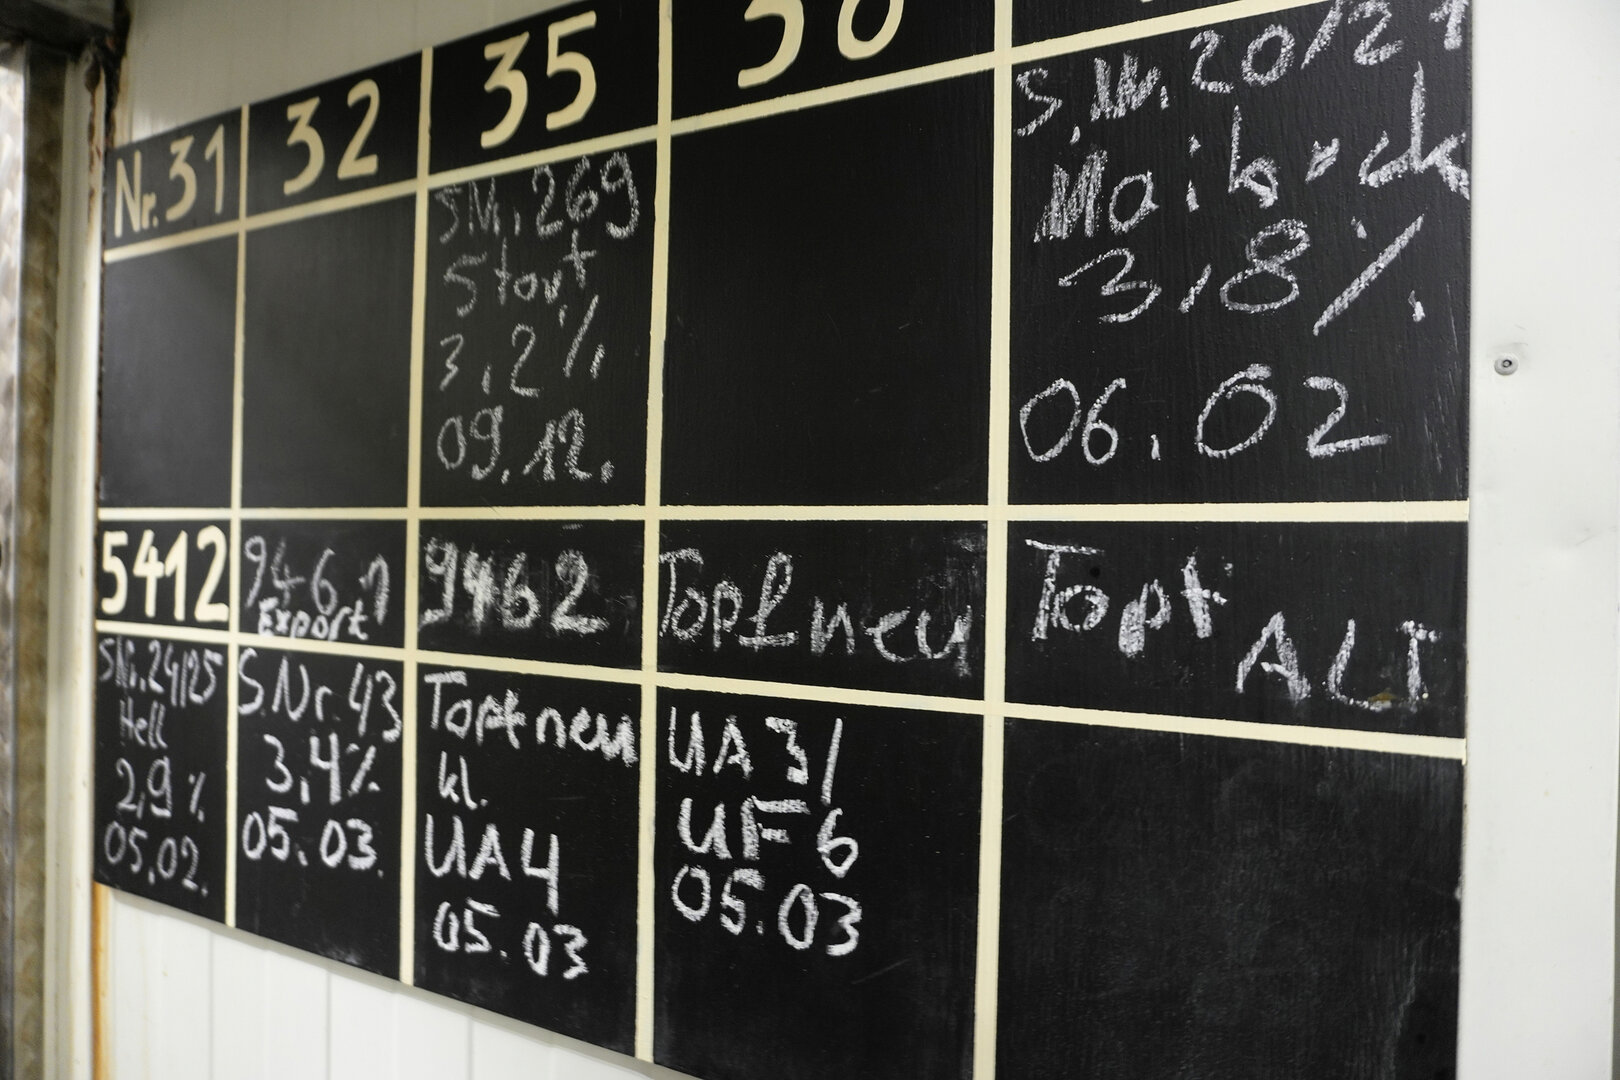 Nr. 31
32
35
S.Nr. 269
Stout
3,2%
09.12.
S.Nr. 20/21
Maibock
3,8%
06.02
5412
9461
Export
9462
Topf neu
Topf
ALT
SNr. 24/25
Hell
2,9%
05.02.
S.Nr. 43
3,4%
05.03.
Topf neu
kl.
UA4
05.03
UA 3/
UF 6
05.03